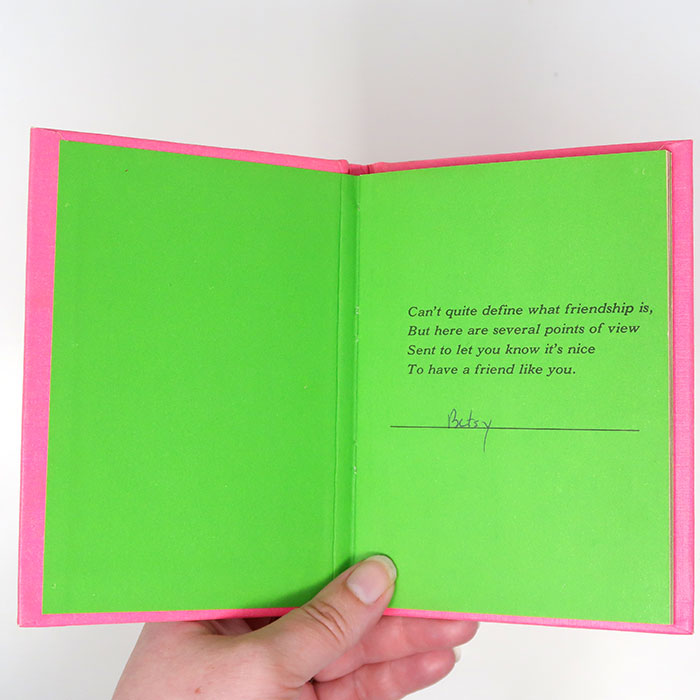 Can't quite define what friendship is,
But here are several points of view
Sent to let you know it's nice
To have a friend like you.
Betsy